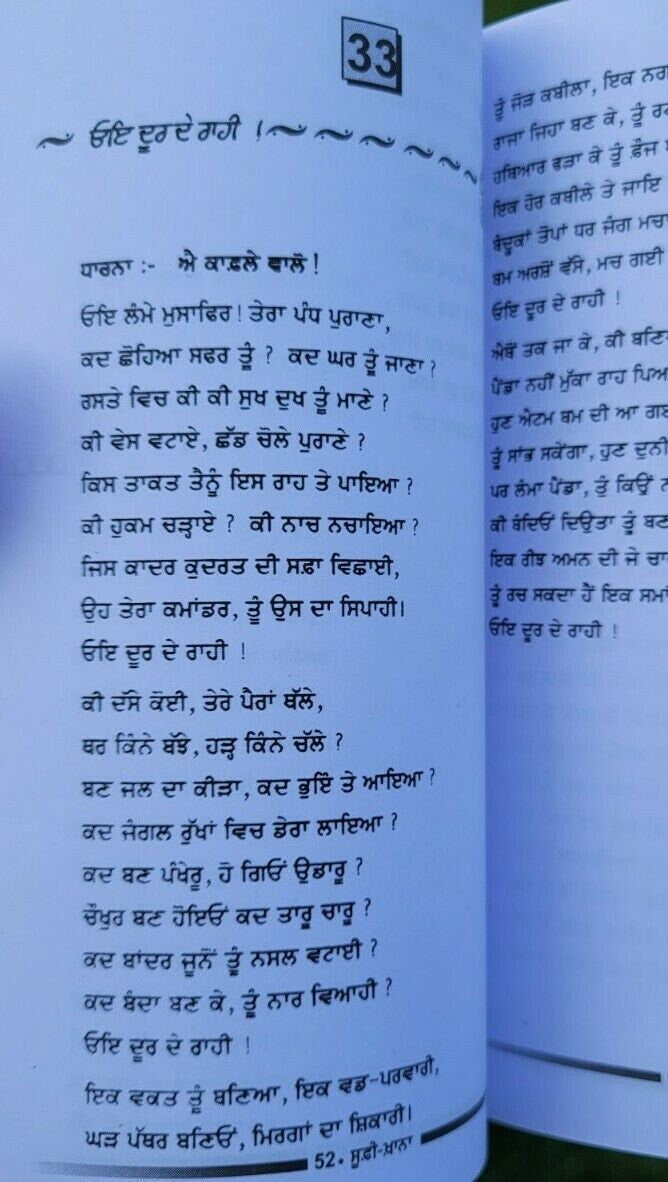 33
ਓਇ ਦੂਰ ਦੇ ਰਾਹੀ !
ਧਾਰਨਾ :- ਐ ਕਾਫ਼ਲੇ ਵਾਲੋ !
ਓਇ ਲੰਮੇ ਮੁਸਾਫਿਰ! ਤੇਰਾ ਪੰਧ ਪੁਰਾਣਾ,
ਕਦ ਛੋਹਿਆ ਸਫਰ ਤੂੰ ? ਕਦ ਘਰ ਤੂੰ ਜਾਣਾ ?
ਰਸਤੇ ਵਿਚ ਕੀ ਕੀ ਸੁਖ ਦੁਖ ਤੂੰ ਮਾਣੇ ?
ਕੀ ਵੇਸ ਵਟਾਏ, ਛੱਡ ਚੋਲੇ ਪੁਰਾਣੇ ?
ਕਿਸ ਤਾਕਤ ਤੈਨੂੰ ਇਸ ਰਾਹ ਤੇ ਪਾਇਆ ?
ਕੀ ਹੁਕਮ ਚੜ੍ਹਾਏ ? ਕੀ ਨਾਚ ਨਚਾਇਆ ?
ਜਿਸ ਕਾਦਰ ਕੁਦਰਤ ਦੀ ਸਫ਼ਾ ਵਿਛਾਈ,
ਉਹ ਤੇਰਾ ਕਮਾਂਡਰ, ਤੂੰ ਉਸ ਦਾ ਸਿਪਾਹੀ।
ਓਇ ਦੂਰ ਦੇ ਰਾਹੀ !
ਕੀ ਦੱਸੇ ਕੋਈ, ਤੇਰੇ ਪੈਰਾਂ ਥੱਲੇ,
ਥਰ ਕਿੰਨੇ ਬੱਝੇ, ਹੜ੍ਹ ਕਿੰਨੇ ਚੱਲੇ ?
ਬਣ ਜਲ ਦਾ ਕੀੜਾ, ਕਦ ਭੁਇੰ ਤੇ ਆਇਆ ?
ਕਦ ਜੰਗਲ ਰੁੱਖਾਂ ਵਿਚ ਡੇਰਾ ਲਾਇਆ ?
ਕਦ ਬਣ ਪੰਖੇਰੂ, ਹੋ ਗਿਓਂ ਉਡਾਰੂ ?
ਚੌਖੁਰ ਬਣ ਹੋਇਓਂ ਕਦ ਤਾਰੂ ਚਾਰੂ ?
ਕਦ ਬਾਂਦਰ ਜੂਨੋਂ ਤੂੰ ਨਸਲ ਵਟਾਈ ?
ਕਦ ਬੰਦਾ ਬਣ ਕੇ, ਤੂੰ ਨਾਰ ਵਿਆਹੀ ?
ਓਇ ਦੂਰ ਦੇ ਰਾਹੀ !
ਇਕ ਵਕਤ ਤੂੰ ਬਣਿਆ, ਇਕ ਵਡ-ਪਰਵਾਰੀ,
ਘੜ ਪੱਥਰ ਬਣਿਓਂ, ਮਿਰਗਾਂ ਦਾ ਸ਼ਿਕਾਰੀ।
52. ਸੂਫ਼ੀ-ਖ਼ਾਨਾ
ਤੂੰ ਜੋੜ ਕਬੀਲਾ, ਇਕ
ਰਾਜਾ ਜਿਹਾ ਬਣ ਕੇ, ਤੂੰ
ਹਥਿਆਰ ਫੜਾ ਕੇ ਤੂੰ ਫ਼ੌਜ
ਇਕ ਹੋਰ ਕਬੀਲੇ ਤੇ ਜਾਇ
ਬੰਦੂਕਾਂ ਤੋਪਾਂ ਧਰ ਜੰਗ
ਬਮ ਅਰਸ਼ੋਂ ਵੱਸੇ, ਮਚ ਗਈ
ਓਇ ਦੂਰ ਦੇ ਰਾਹੀ !
ਐਥੋਂ ਤਕ ਜਾ ਕੇ, ਕੀ
ਪੈਂਡਾ ਨਹੀਂ ਮੁੱਕਾ ਰਾਹ
ਹੁਣ ਐਟਮ ਬਮ ਦੀ ਆ
ਤੂੰ ਸਾਂਭ ਸਕੇਂਗਾ, ਹੁਣ
ਪਰ ਲੰਮਾ ਪੈਂਡਾ, ਤੂੰ ਕਿਉਂ
ਕੀ ਬੰਦਿਓਂ ਦਿਉਤਾ ਤੂੰ
ਇਕ ਰੀਝ ਅਮਨ ਦੀ ਜੇ
ਤੂੰ ਰਚ ਸਕਦਾ ਹੈਂ ਇਕ
ਓਇ ਦੂਰ ਦੇ ਰਾਹੀ !